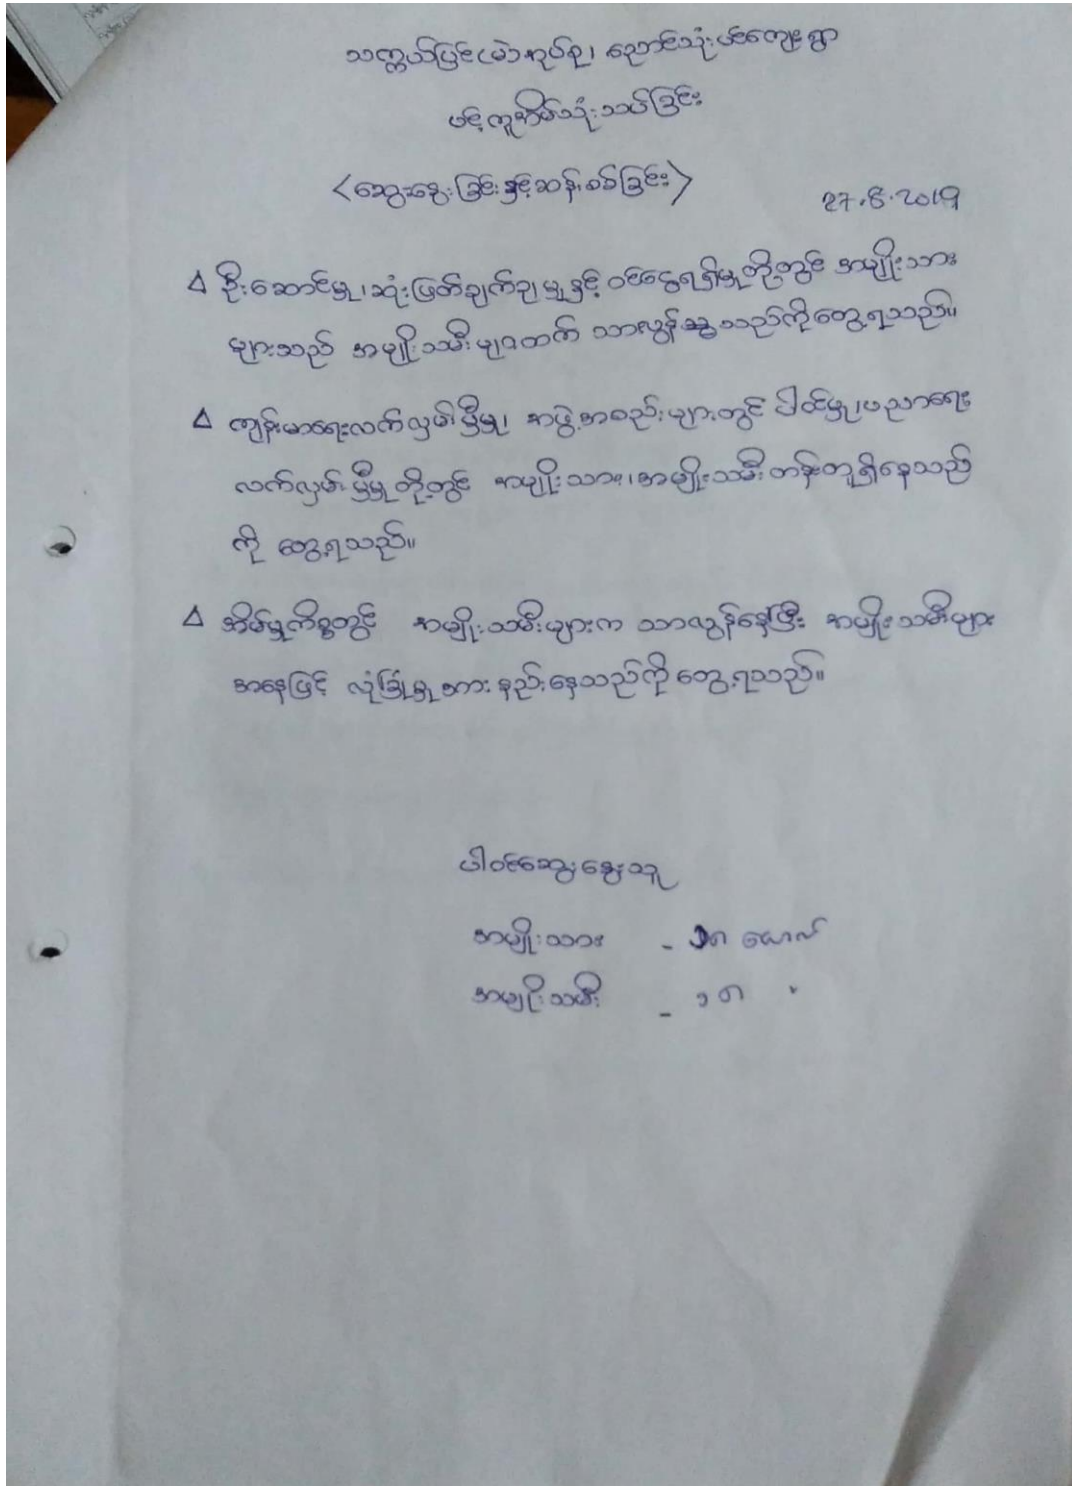 သက္ကယ်ပြင်(မဲ)အုပ်စု၊ ညောင်သုံးပင်ကျေးရွာ
ပင့်ကူအိမ်သုံးသပ်ခြင်း
<ဆွေးနွေးခြင်းနှင့်ဆန်းစစ်ခြင်း>
27.8.2019
Δ ဦးဆောင်မှု၊ ဆုံးဖြတ်ချက်ချမှုနှင့် ဝင်ငွေရရှိမှုတို့တွင် အမျိုးသား
များသည် အမျိုးသမီးများထက် သာလွန်နေသည်ကိုတွေ့ရသည်။
Δ ကျန်းမာရေးလက်လှမ်းမှီမှု၊ အဖွဲ့အစည်းများတွင် ပါဝင်မှု၊ ပညာရေး
လက်လှမ်းမှီမှုတို့တွင် အမျိုးသား၊ အမျိုးသမီးတန်းတူရှိနေသည်
ကို တွေ့ရသည်။
Δ အိမ်မှုကိစ္စတွင် အမျိုးသမီးများက သာလွန်နေပြီး အမျိုးသမီးများ
အနေဖြင့် လုံခြုံမှုအားနည်းနေသည်ကိုတွေ့ရသည်။
ပါဝင်ဆွေးနွေးသူ
အမျိုးသား - ယောက်
အမျိုးသမီး - "